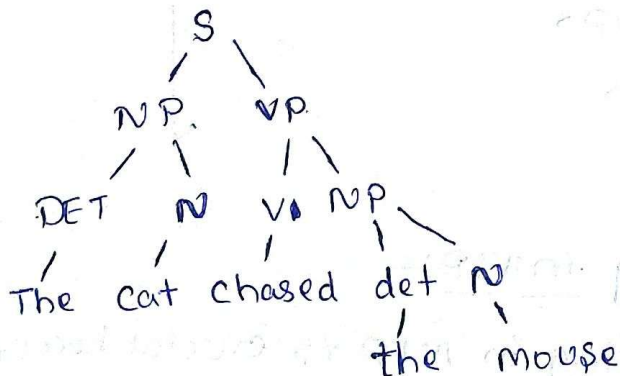 S
NP. VP.
DET N V NP
The cat chased det N
the mouse